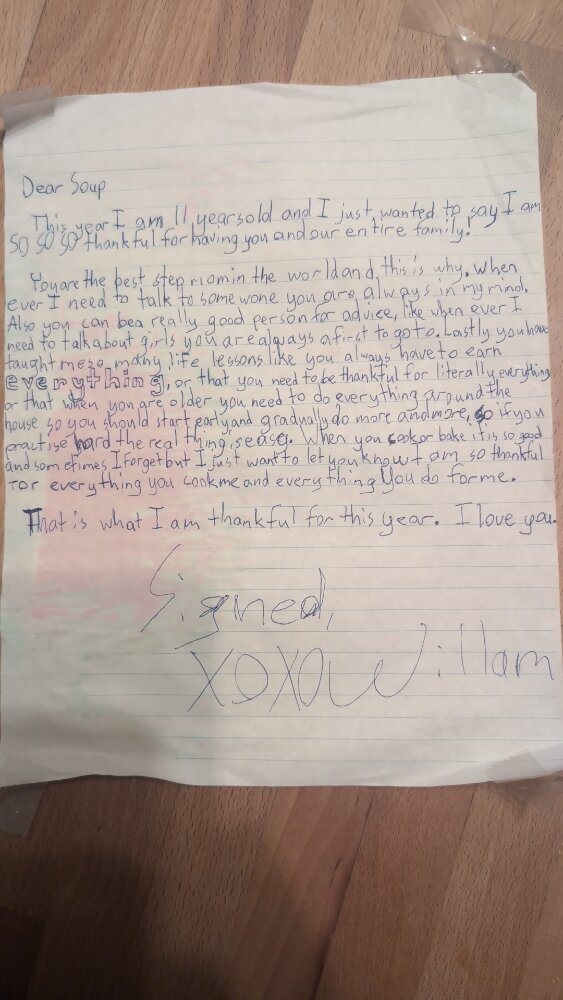 Dear Soup
This year I am 11 years old and I just wanted to say I am
SO SO SO thankful for having you and our entire family!
You are the best step mom in the world and this is why. When
ever I need to talk to somewone you are always in my mind.
Also you can be a really good person for advice, like when ever I
need to talk about girls you are always a first to go to. Lastly you have
taught me so many life lessons like you always have to earn
everything, or that you need to be thankful for literally everything
or that when you are older you need to do everything around the
house so you should start early and gradually do more and more, so if you
practise hard the real thing is easey. When you cook or bake it is so good
and sometimes I forget but I just want to let you know I am so thankful
for everything you cook me and everything you do for me.
That is what I am thankful for this year. I love you.
Signed,
XOXO Willam